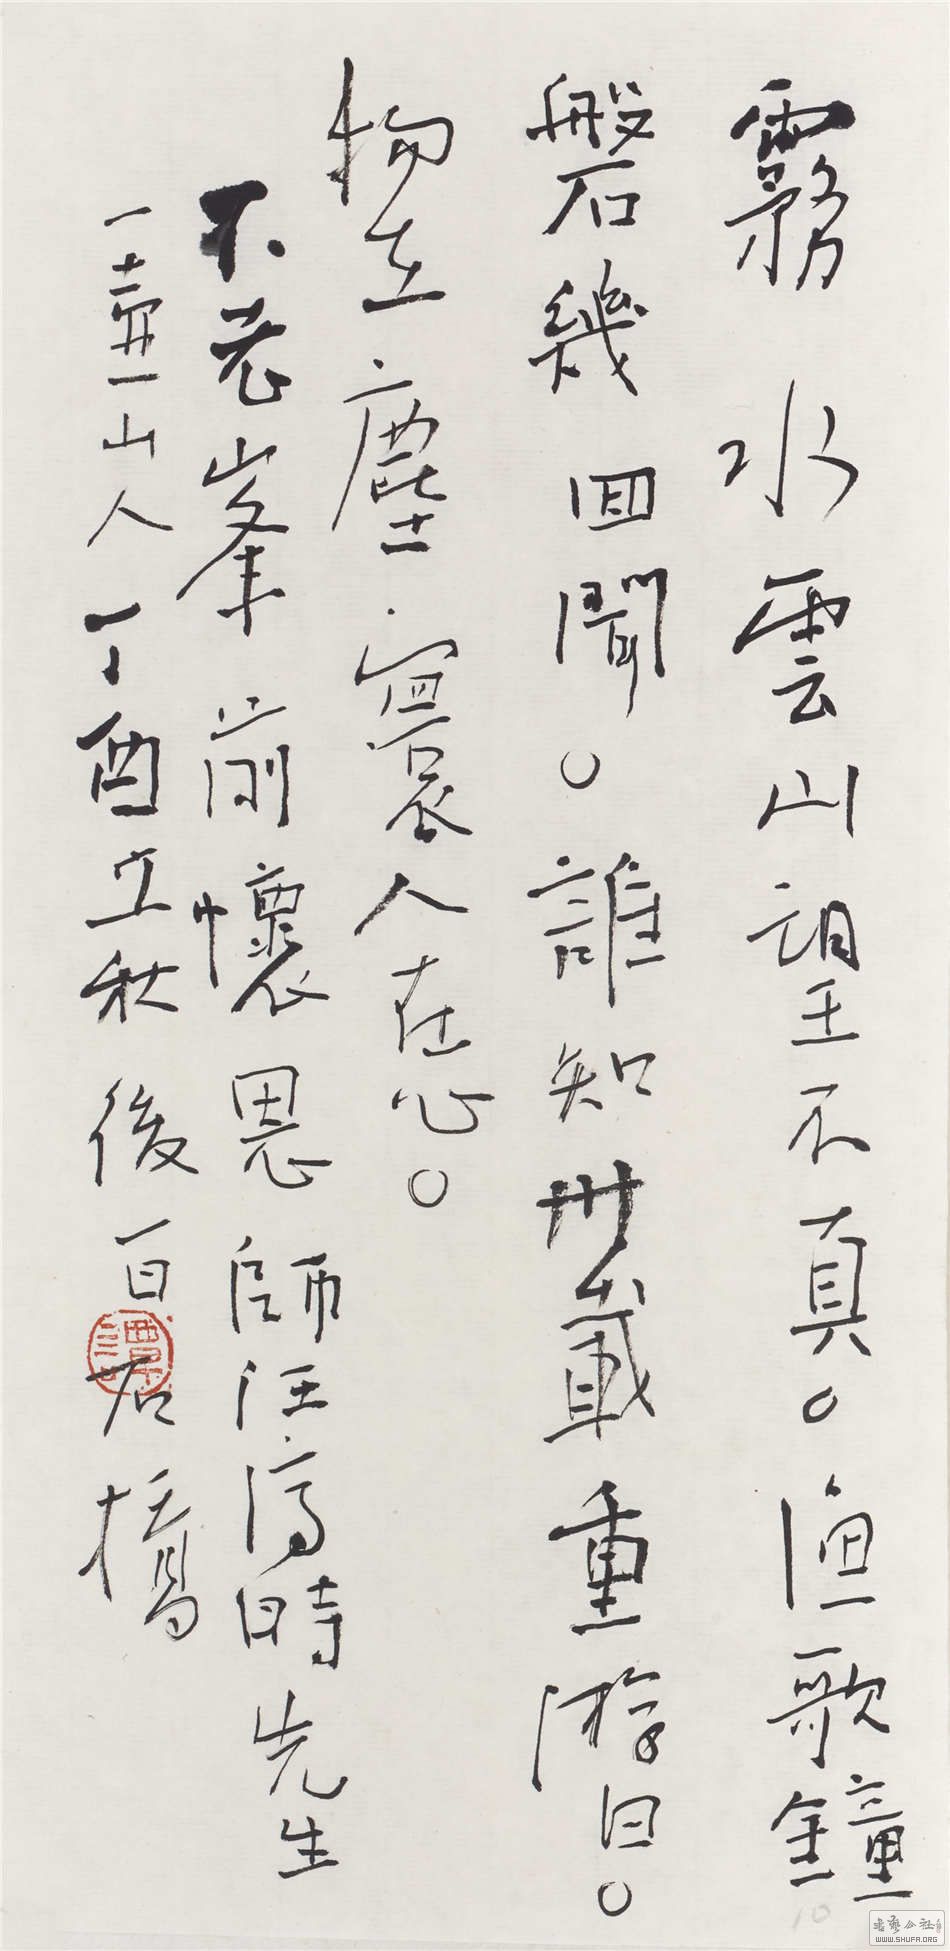 霧水雲山望不真。漁歌鐘
磐幾回聞。誰知卅載重游日。
物在塵寰人在心。
不老峯前懷恩師汪濟時先生
一壺山人丁酉立秋後一日石橋
10
書藝公社
WWW.SHUFA.ORG